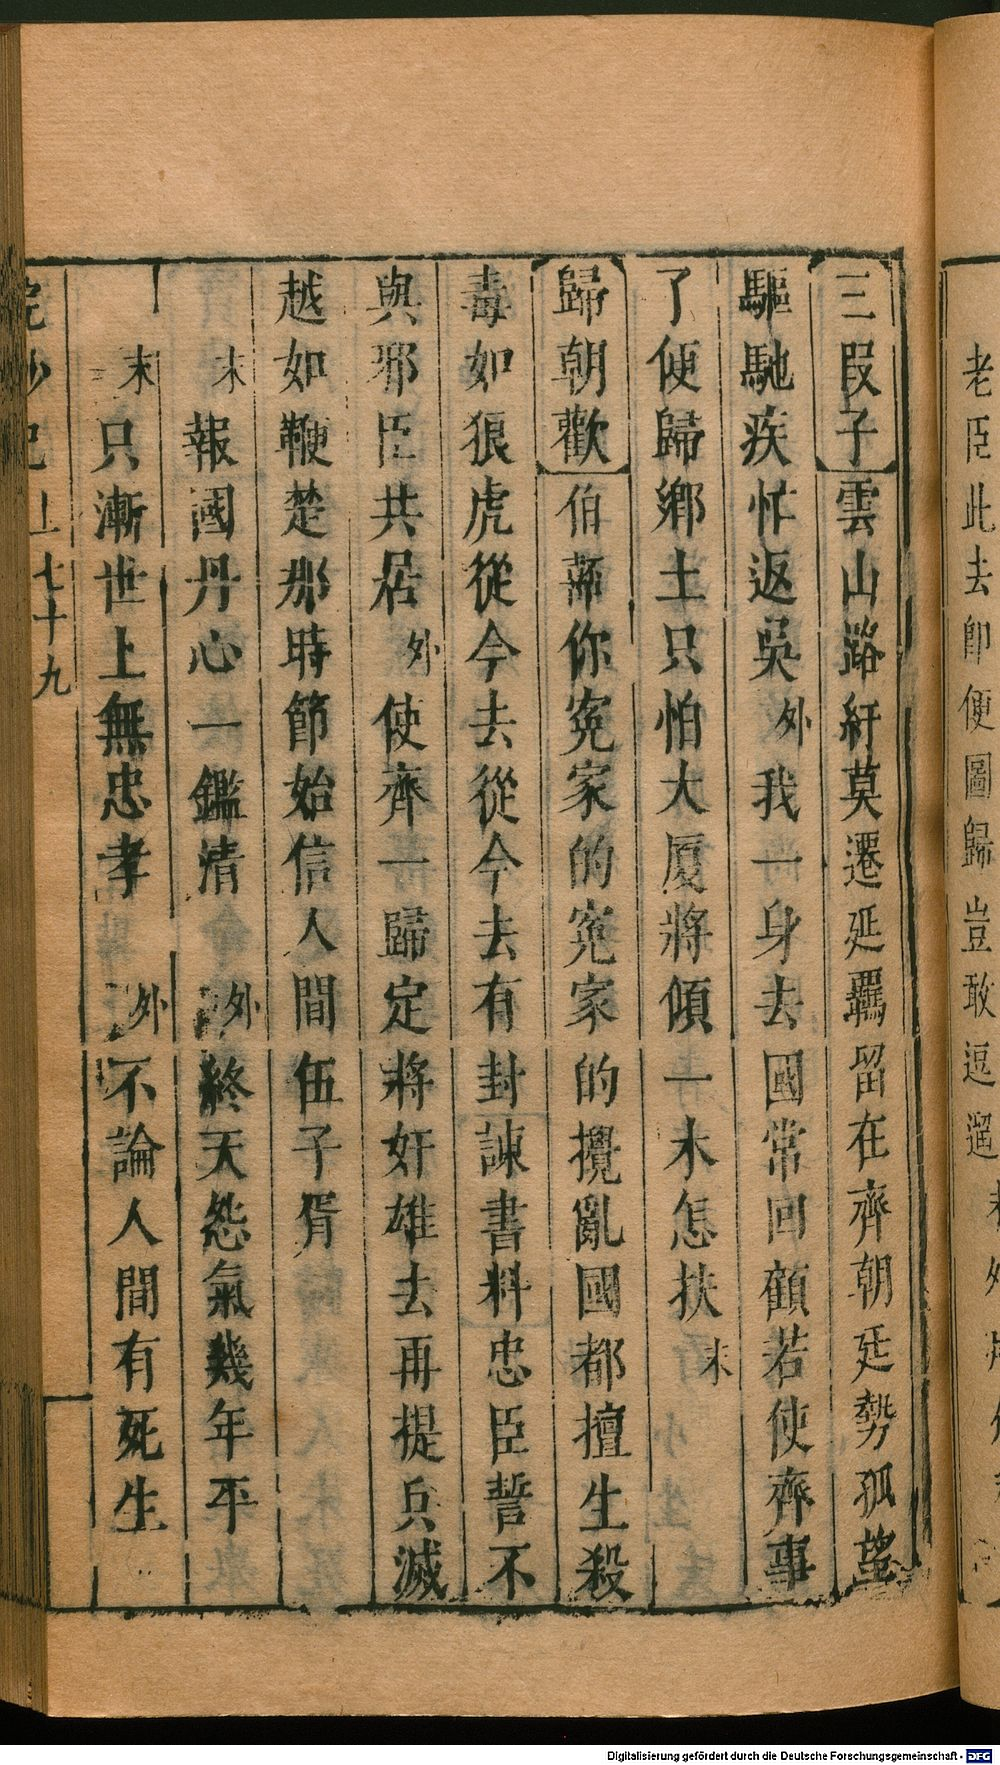 老臣此去卽便圖歸豈敢逗遛
三叚子雲山路紆莫遷延羈留在齊朝廷勢孤望
驅馳疾忙返吳外我一身去國常回顧若使齊事
了便歸鄉土只怕大厦將傾一木怎扶末
歸朝歡伯嚭你寃家的寃家的攪亂國都擅生殺
毒如狼虎從今去從今去有封諫書料忠臣誓不
與邪臣共居外使齊一歸定將奸雄去再提兵滅
越如鞭楚那時節始信人間伍子胥
末報國丹心一鑑清外終天怨氣幾年平
末只漸世上無忠孝外不論人間有死生
浣紗記上七十九
Digitalisierung gefördert durch die Deutsche Forschungsgemeinschaft - DFG